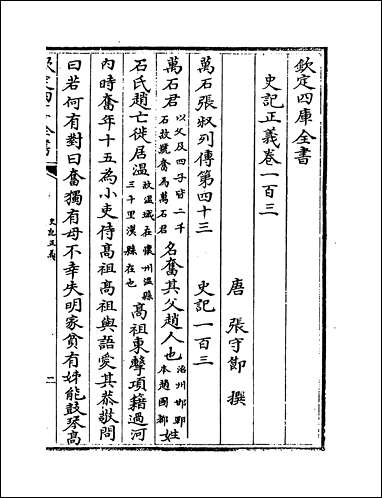 欽定四庫全書
史記正義卷一百三
唐 張守節 撰
萬石張叔列傳第四十三 史記一百三
萬石君以父及四子皆二千石故號奮為萬石君名奮其父趙人也洺州邯鄲本趙國都姓
石氏趙亡徙居温故温城在懷州温縣三十里漢縣在也高祖東擊項籍過河
内時奮年十五為小吏侍高祖高祖與語愛其恭敬問
曰若何有對曰奮獨有母不幸失明家貧有姊能鼓琴高
欽定四庫全書
史記正義
二